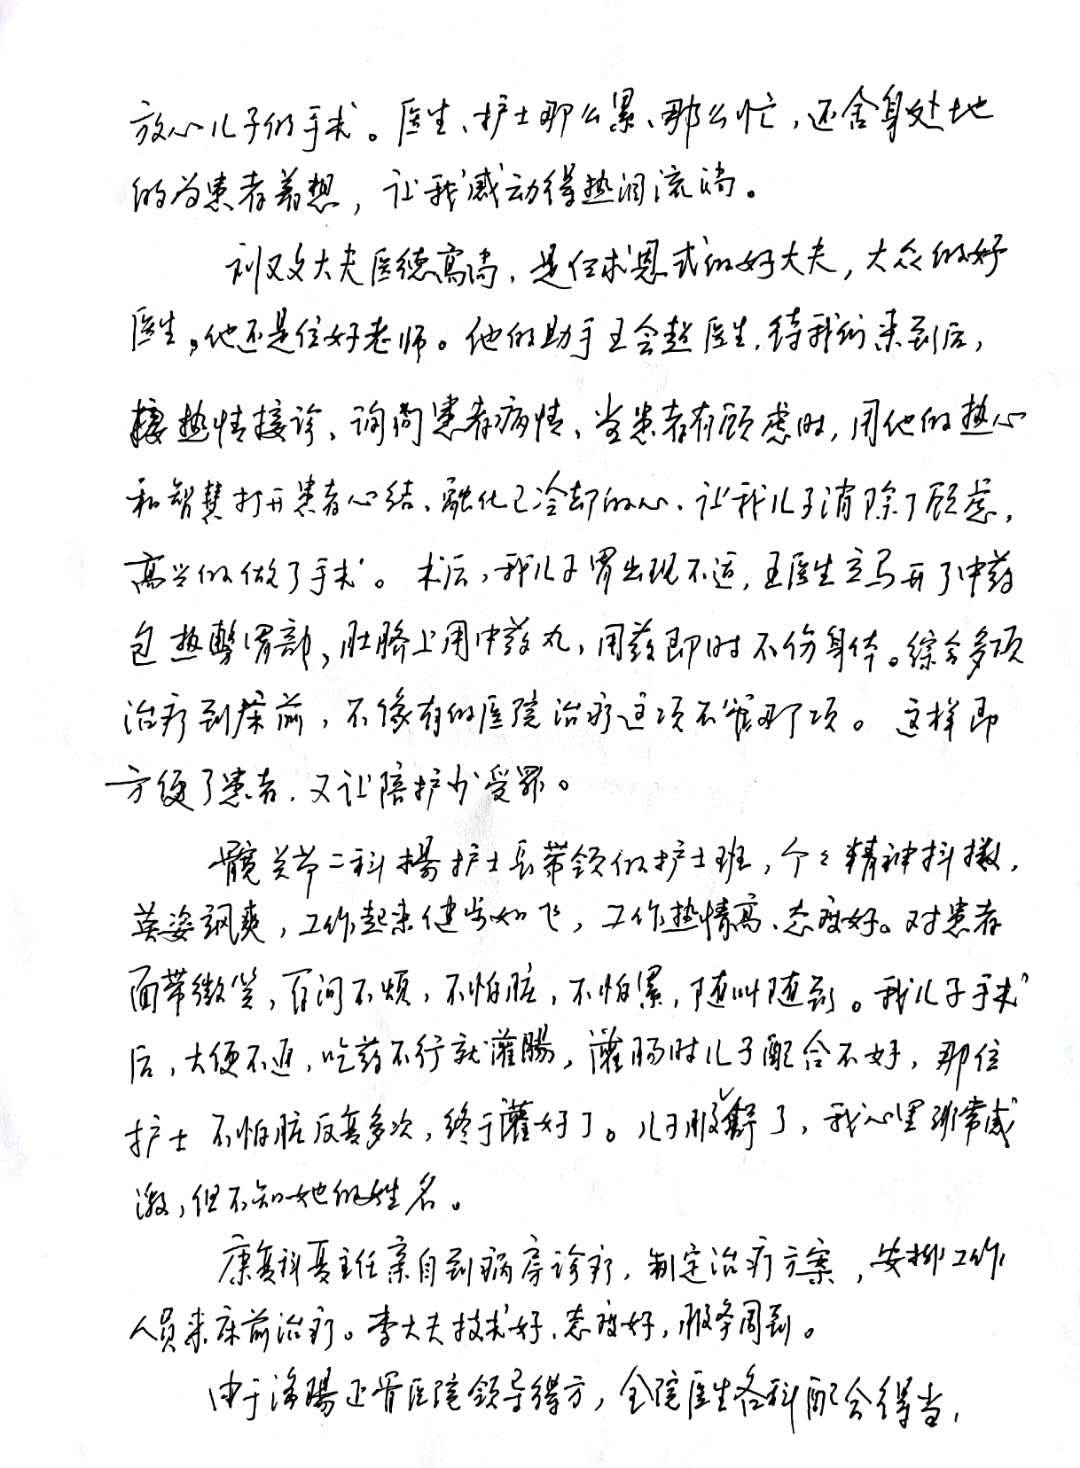 放心儿子的手术。医生、护士那么累、那么忙，还舍身处地
的为患者着想，让我感动得热泪流淌。
刘又文大夫医德高尚，是位求恩式的好大夫，大众的好
医生，他还是位好老师。他的助手王会超医生，待我们来到后，
热情接诊、询问患者病情、当患者有顾虑时，用他的热心
和智慧打开患者心结、融化已冷却的心、让我儿子消除了顾虑，
高兴的做了手术。术后，我儿子胃出现不适，王医生立马开了中药
包热敷胃部，肚脐上用中药丸，用药即时不伤身体。综合多项
治疗到床前，不像有的医院治疗这项不管那项。这样即
方便了患者，又让陪护少受罪。
髋关节二科楊护士長带领的护士班，个个精神抖擞，
英姿飒爽，工作起来健步如飞，工作热情高、态度好。对患者
面带微笑，百问不烦，不怕脏，不怕累，随叫随到。我儿子手术
后，大便不通，吃药不行就灌腸，灌肠时儿子配合不好，那位
护士不怕脏反复多次，终于灌好了。儿子解了，我心里非常感
激，但不知她的姓名。
康复科夏主任亲自到病房诊疗，制定治疗方案，安排工作
人员来床前治疗。李大夫技术好、态度好，服务周到。
由于洛陽正骨医院领导得方，全院医生各科配合得当，